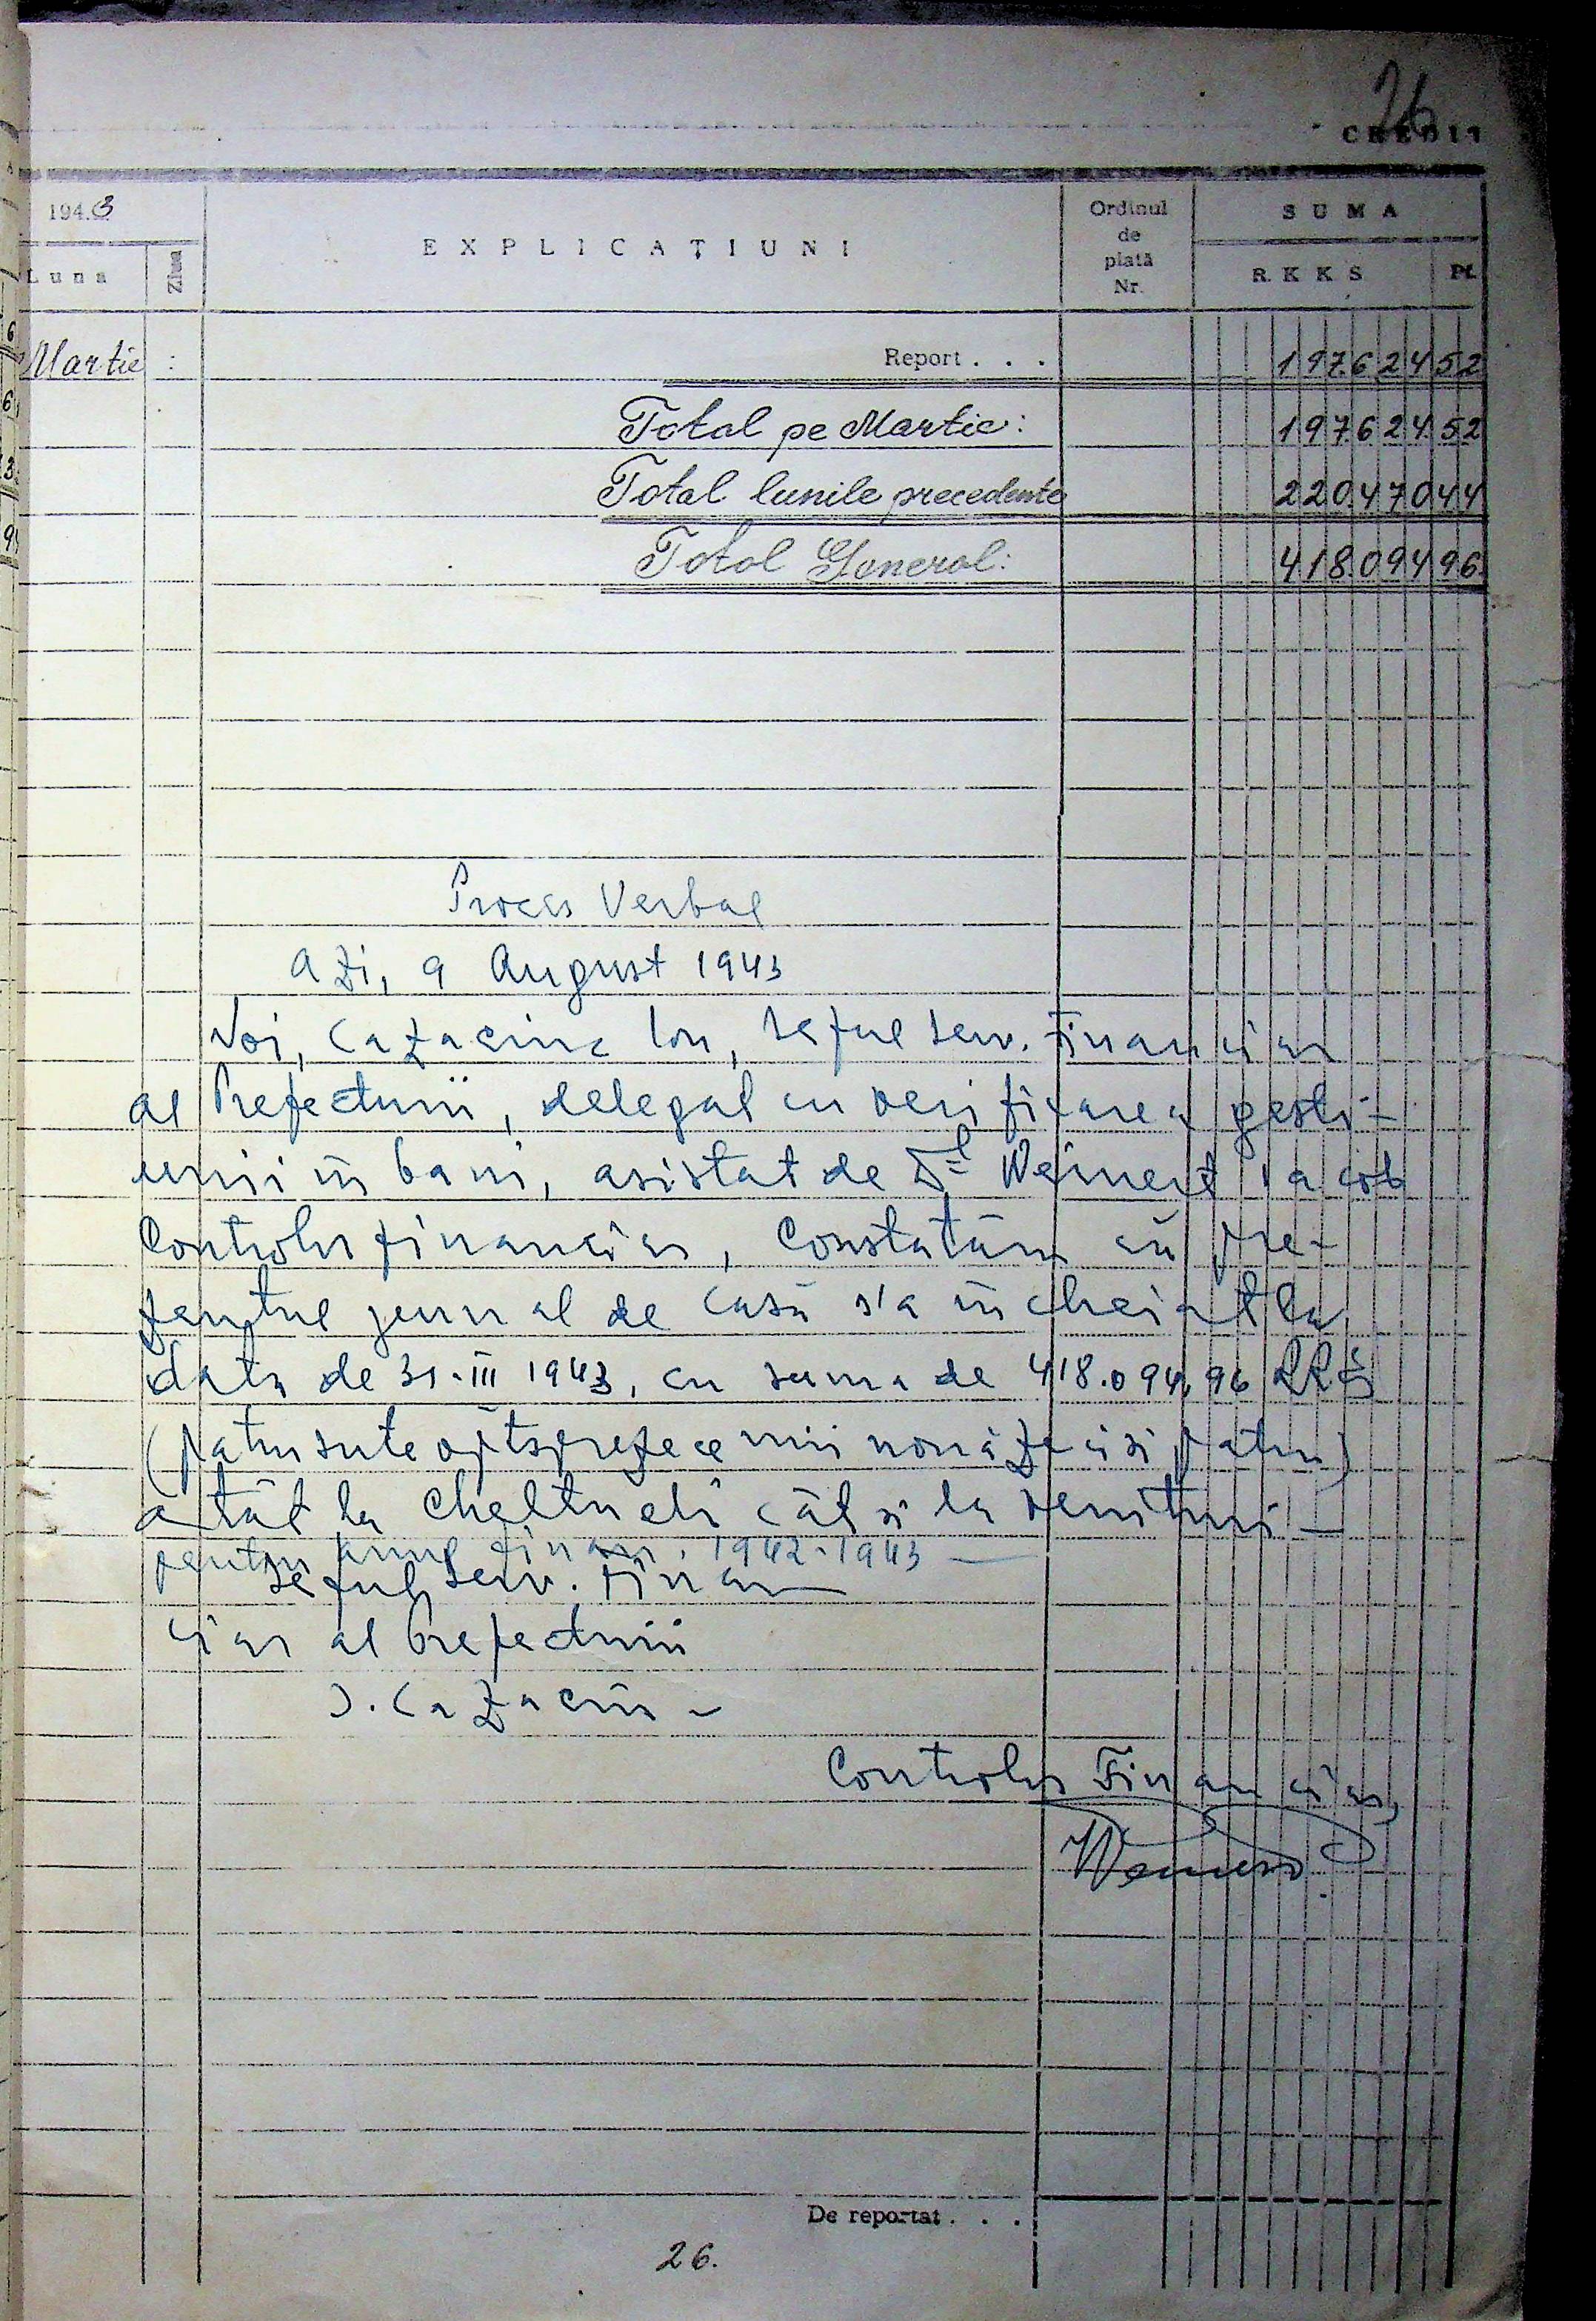 26
CREDIT
1943
EXPLICAȚIUNI
Ordinul de plată Nr.
SUMA
Luna
Ziua
R. K. K. S.
Pf.
Martie : Report . . . 197.624 52
Total pe Martie: 197.624 52
Total lunile precedente 220.470 44
Total General: 418.094 96
Proces Verbal
Azi, 9 August 1943
Noi, Cazacinc Ion, seful serv. Financiar
al Prefecturii, delegat cu verificarea gesti-
unii in bani, asistat de Dl Weinert Iacob
Controlor financiar, Constatăm că pre-
zentul jurnal de casă s'a incheiat la
data de 31.III 1943, cu suma de 418.094,96
(patru sute optsprezece mii nouăzeci si patru)
atât la cheltueli cât si la venituri —
pentru anul finan. 1942-1943 —
seful serv. Finan
ciar al Prefecturii
Controlor Financiar,
De reportat . . .
26.